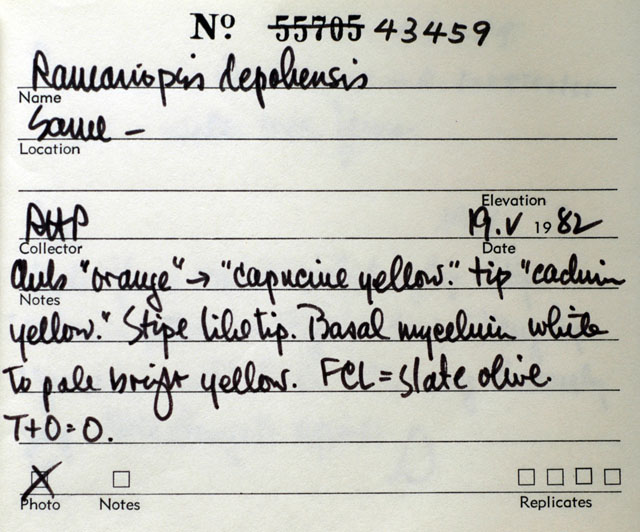 Nº 55705 43459
Ramariopis depokensis
Name
Same -
Location
Elevation
RHP 19.V 1982
Collector Date
Clubs "orange" → "capucine yellow." tip "cadmium
Notes
yellow." Stipe like tip. Basal mycelium white
to pale bright yellow. FCL = slate olive.
T+O=0.
Photo Notes Replicates